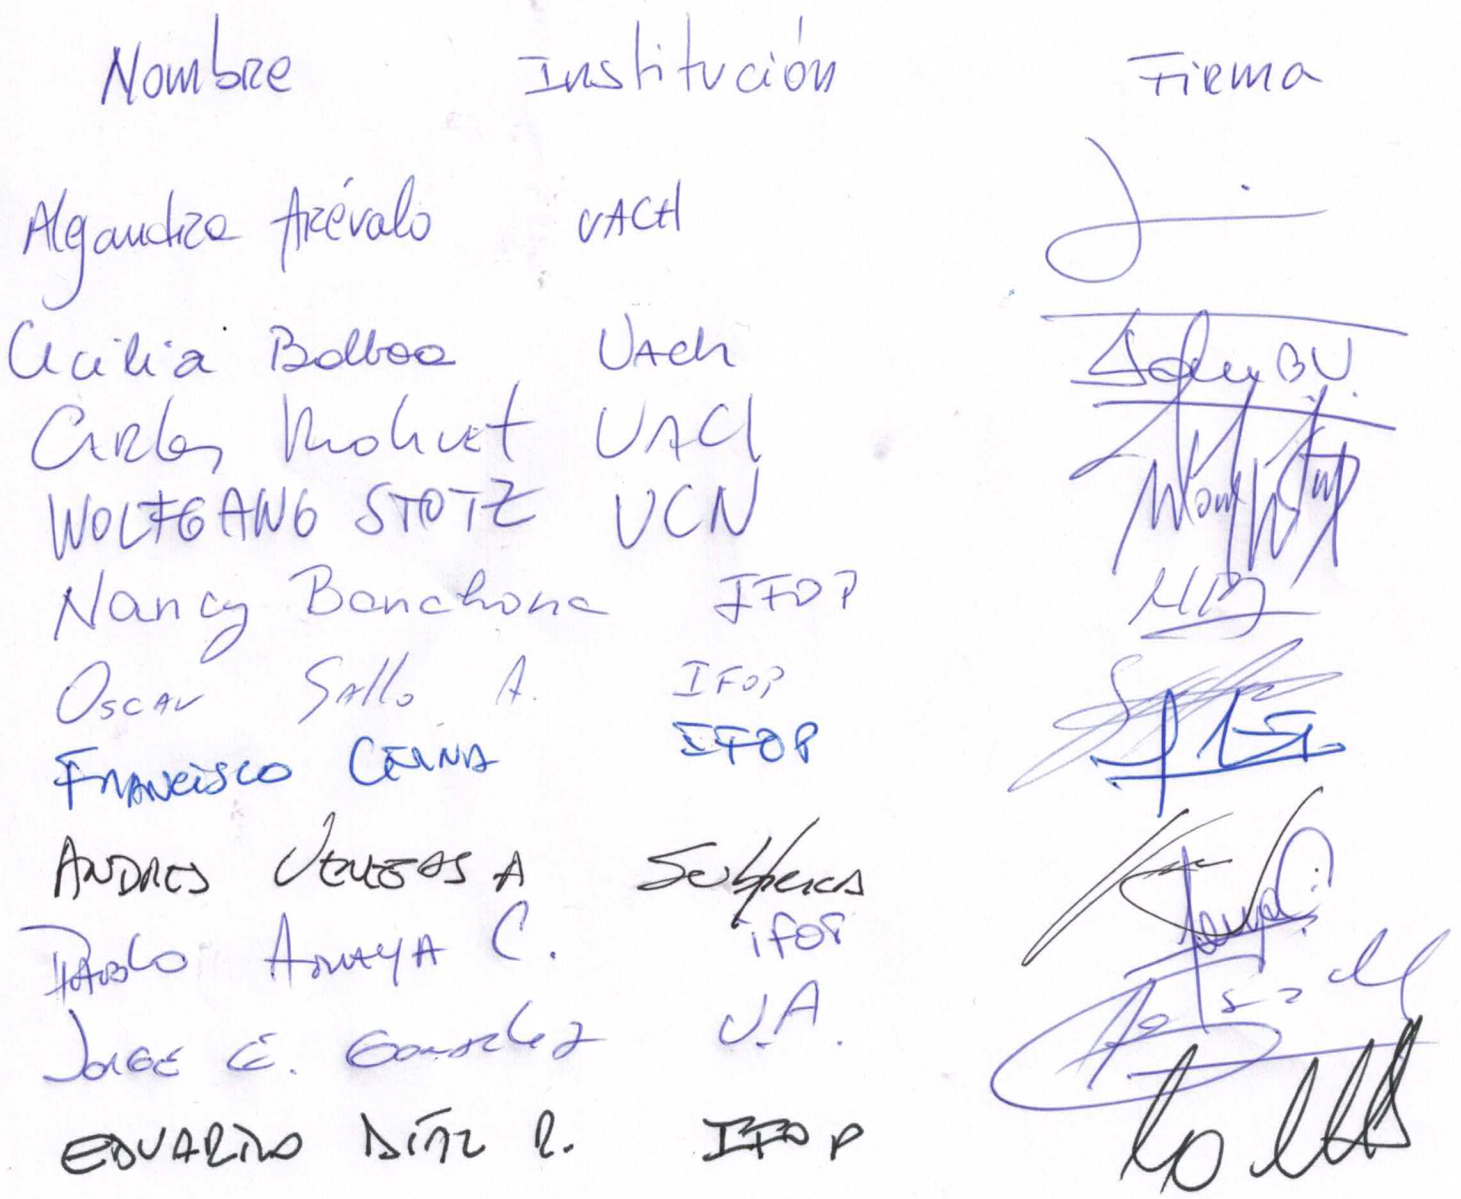 Nombre Institución Firma
Algandra Arévalo UACH
Cecilia Balboa UACh
Carlos Molinet UACh
WOLFGANG STOTZ UCN
Nancy Barahona IFOP
Oscar Gallo A. IFOP
FRANCISCO CERNA IFOP
ANDRES VENEGAS A Subpesca
PABLO ARAYA C. IFOP
JORGE E. González U.A.
EDUARDO DÍAZ R. IFOP